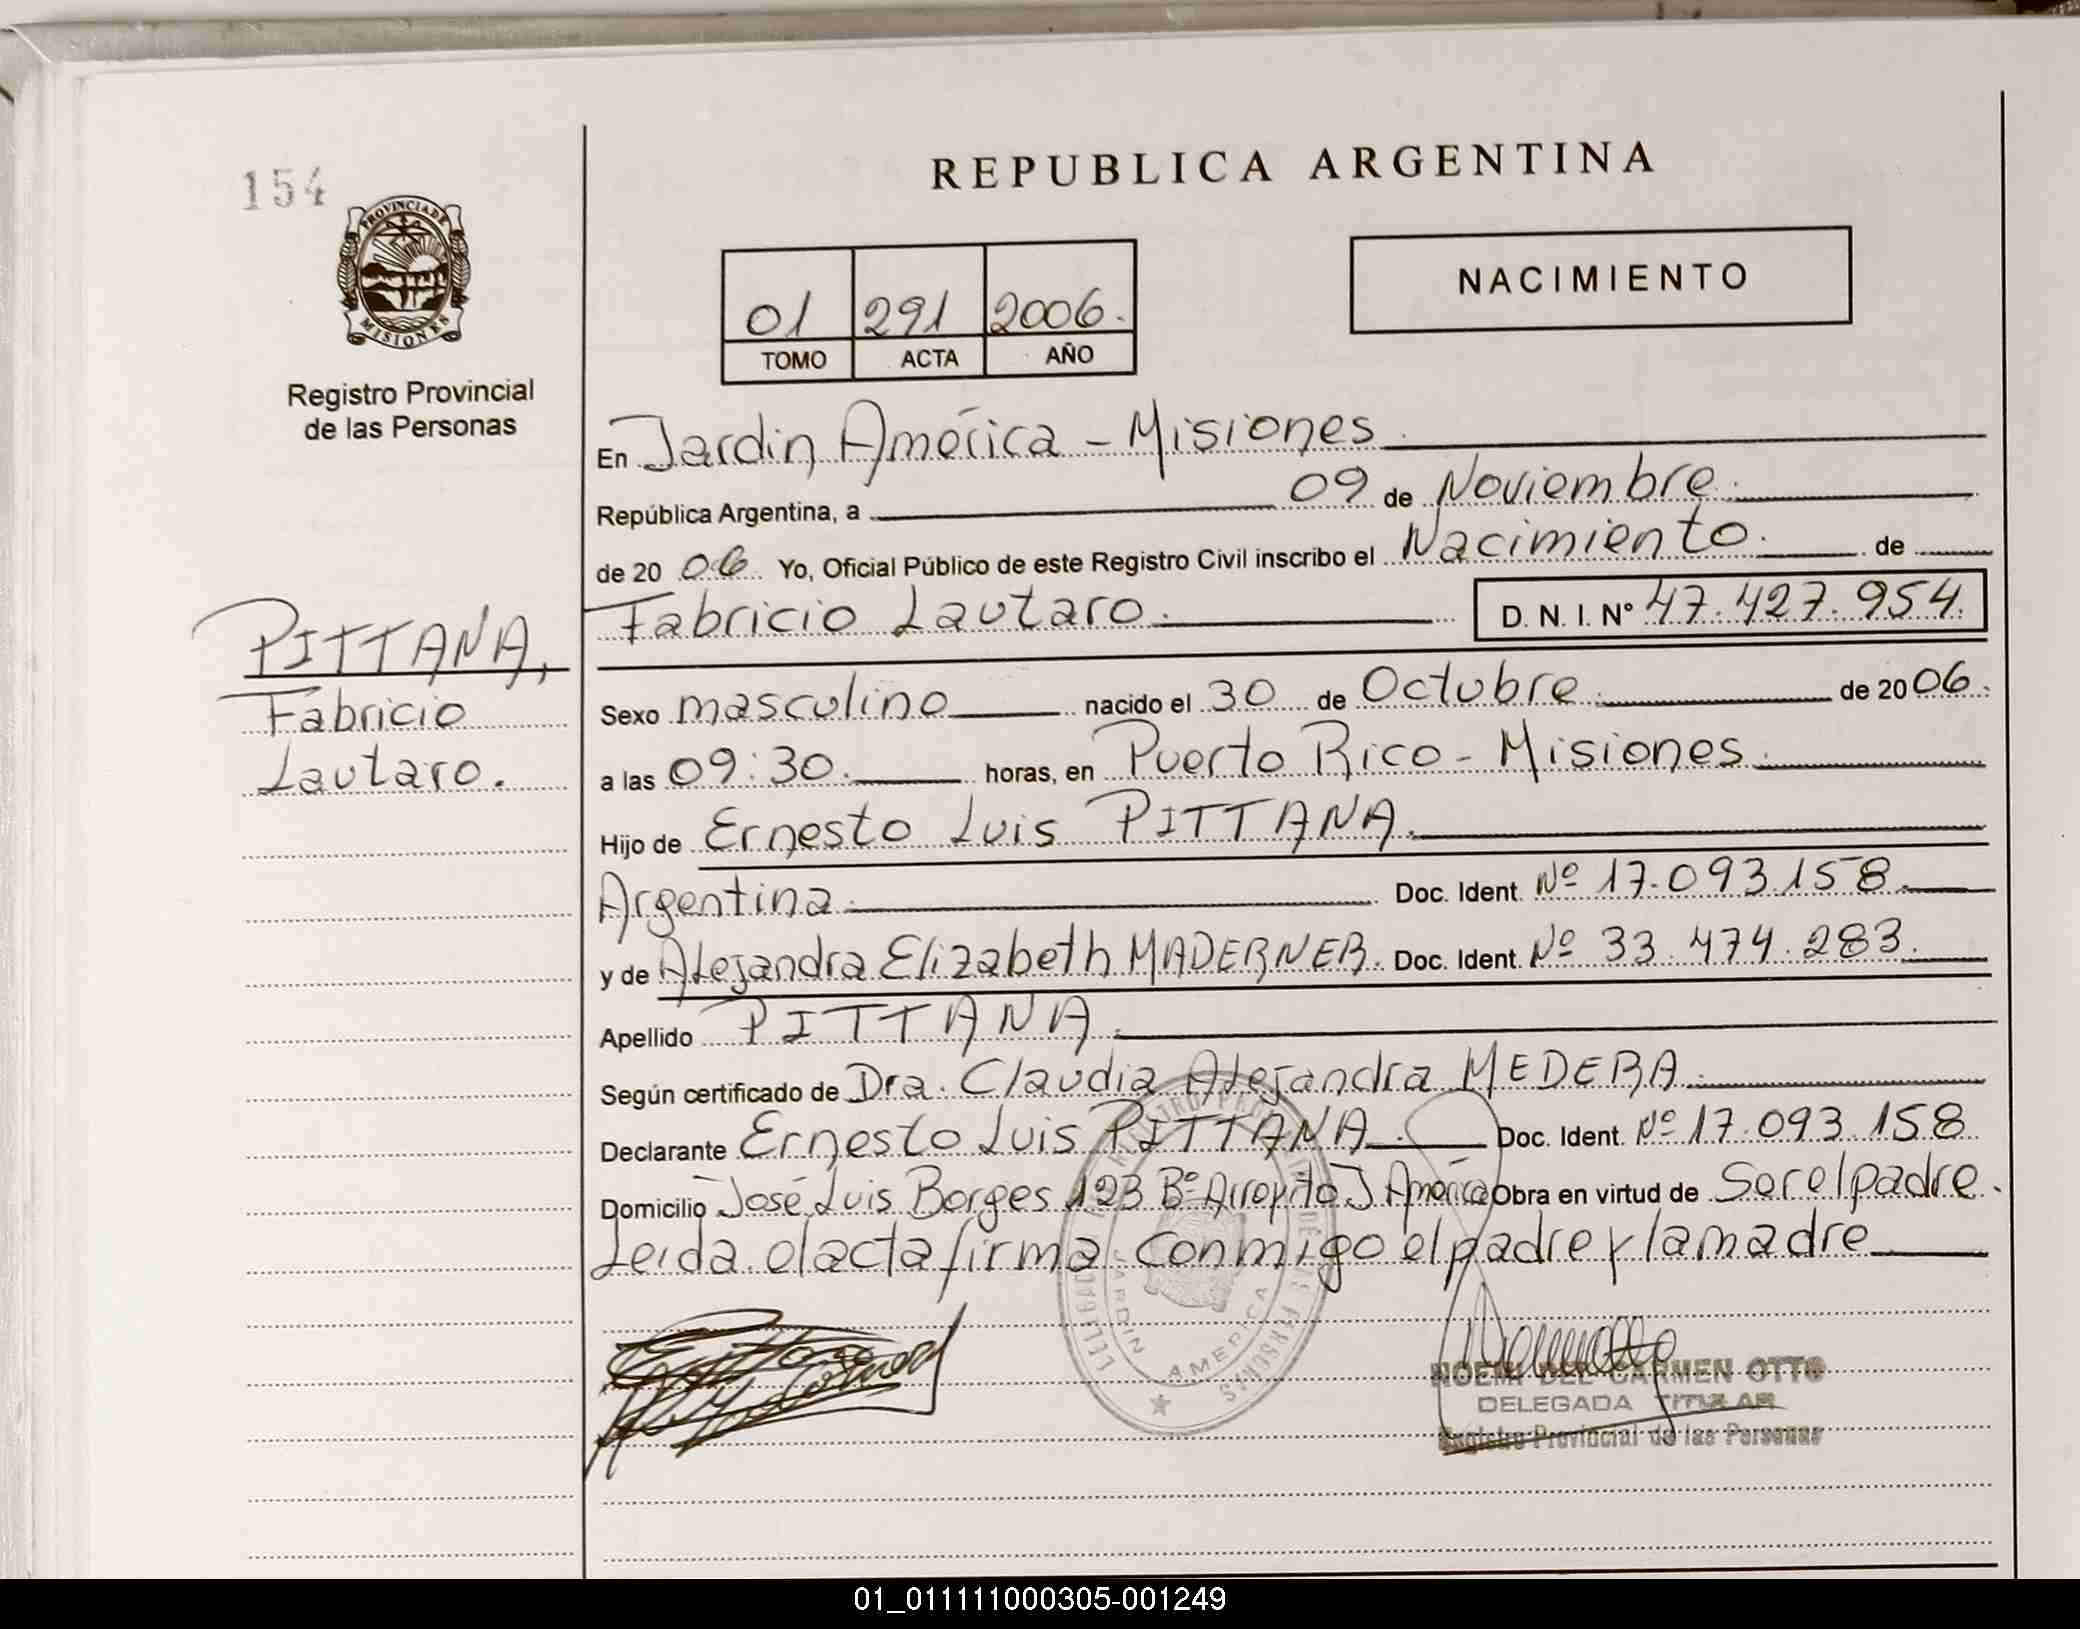 154
PROVINCIA DE
MISIONES
Registro Provincial
de las Personas
REPUBLICA ARGENTINA
01 291 2006.
TOMO ACTA AÑO
NACIMIENTO
En Jardin América - Misiones.
República Argentina, a 09 de Noviembre.
de 20 06. Yo, Oficial Público de este Registro Civil inscribo el Nacimiento. de
Fabricio Lautaro. D. N. I. Nº 47.427.954.
PITTANA,
Fabricio
Lautaro.
Sexo masculino nacido el 30 de Octubre. de 20 06.
a las 09:30. horas, en Puerto Rico - Misiones.
Hijo de Ernesto Luis PITTANA.
Argentina. Doc. Ident. Nº 17.093.158.
y de Alejandra Elizabeth MADERNER. Doc. Ident. Nº 33.474.283.
Apellido PITTANA.
Según certificado de Dra. Claudia Alejandra MEDERA.
Declarante Ernesto Luis PITTANA. Doc. Ident. Nº 17.093.158
Domicilio José Luis Borges 123 Bº Arroyito J. América Obra en virtud de Ser el padre.
Leida el acta firma conmigo el padre y la madre
JARDIN AMERICA
NOEMI DEL CARMEN OTTO
DELEGADA TITULAR
Registro Provincial de las Personas
01_011111000305-001249